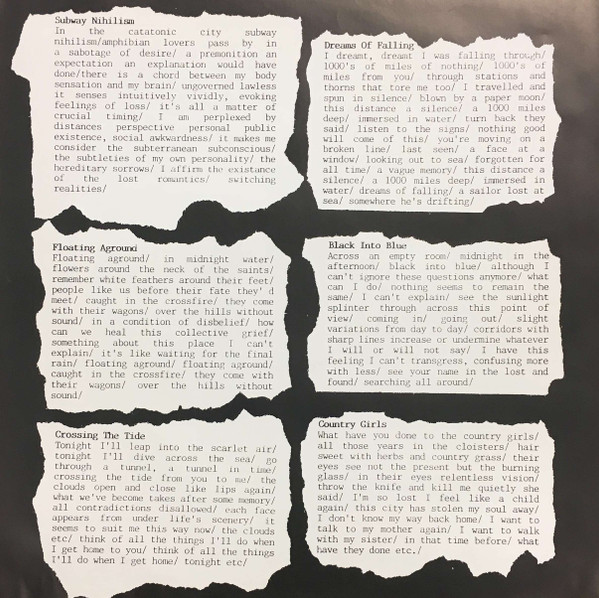 Subway Nihilism
In the catatonic city subway
nihilism/amphibian lovers pass by in
a sabotage of desire/ a premonition an
expectation an explanation would have
done/there is a chord between my body
sensation and my brain/ ungoverned lawless
it senses intuitively vividly, evoking
feelings of loss/ it's all a matter of
crucial timing/ I am perplexed by
distances perspective personal public
existence, social awkwardness/ it makes me
consider the subterranean subconscious/
the subtleties of my own personality/ the
hereditary sorrows/ I affirm the existance
of the lost romantics/ switching
realities/
Dreams Of Falling
I dreamt, dreamt I was falling through/
1000's of miles of nothing/ 1000's of
miles from you/ through stations and
thorns that tore me too/ I travelled and
spun in silence/ blown by a paper moon/
this distance a silence/ a 1000 miles
deep/ immersed in water/ turn back they
said/ listen to the signs/ nothing good
will come of this/ you're moving on a
broken line/ last seen/ a face at a
window/ looking out to sea/ forgotten for
all time/ a vague memory/ this distance a
silence/ a 1000 miles deep/ immersed in
water/ dreams of falling/ a sailor lost at
sea/ somewhere he's drifting/
Floating Aground
Floating aground/ in midnight water/
flowers around the neck of the saints/
remember white feathers around their feet/
people like us before their fate they' d
meet/ caught in the crossfire/ they come
with their wagons/ over the hills without
sound/ in a condition of disbelief/ how
can we heal this collective grief/
something about this place I can't
explain/ it's like waiting for the final
rain/ floating aground/ floating aground/
caught in the crossfire/ they come with
their wagons/ over the hills without
sound/
Black Into Blue
Across an empty room/ midnight in the
afternoon/ black into blue/ although I
can't ignore these questions anymore/ what
can I do/ nothing seems to remain the
same/ I can't explain/ see the sunlight
splinter through across this point of
view/ coming in/ going out/ slight
variations from day to day/ corridors with
sharp lines increase or undermine whatever
I will or will not say/ I have this
feeling I can't transgress, confusing more
with less/ see your name in the lost and
found/ searching all around/
Crossing The Tide
Tonight I'll leap into the scarlet air/
tonight I'll dive across the sea/ go
through a tunnel, a tunnel in time/
crossing the tide from you to me/ the
clouds open and close like lips again/
what we've become takes after some memory/
all contradictions disallowed/ each face
appears from under life's scenery/ it
seems to suit me this way now/ the clouds
etc/ think of all the things I'll do when
I get home to you/ think of all the things
I'll do when I get home/ tonight etc/
Country Girls
What have you done to the country girls/
all those years in the cloisters/ hair
sweet with herbs and country grass/ their
eyes see not the present but the burning
glass/ in their eyes relentless vision/
throw the knife and kill me quietly she
said/ I'm so lost I feel like a child
again/ this city has stolen my soul away/
I don't know my way back home/ I want to
talk to my mother again/ I want to walk
with my sister/ in that time before/ what
have they done etc./